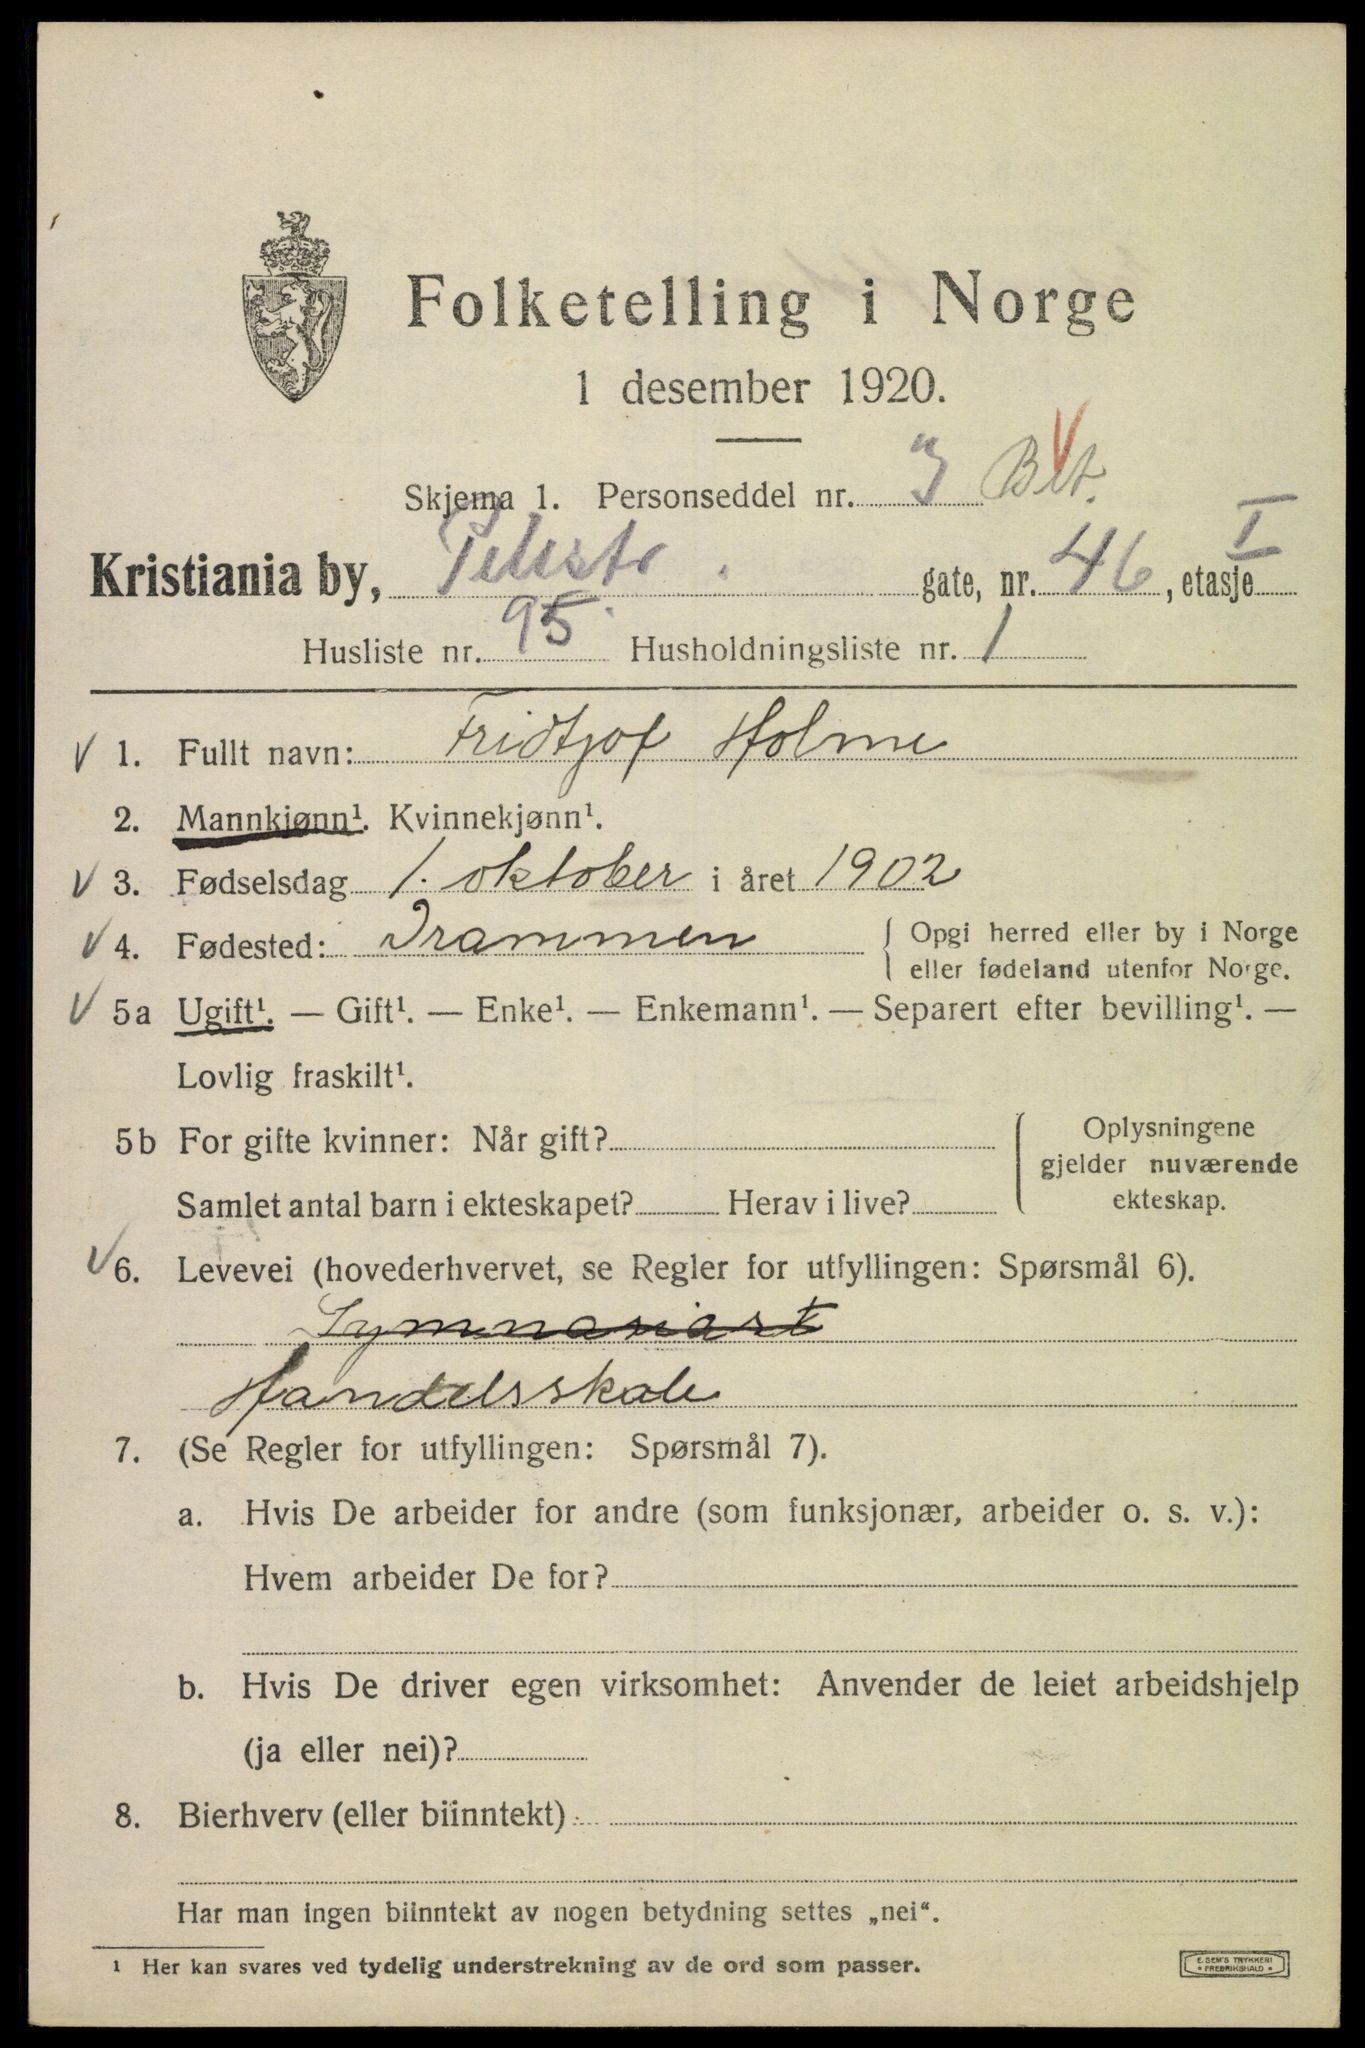 Folketelling i Norge
1 desember 1920.
Skjema 1. Personseddel nr. 3 Bit.
Kristiania by, Pilestr. gate, nr. 46, etasje I
Husliste nr. 95. Husholdningsliste nr. 1
V 1. Fullt navn: Fridtjof Holme
2. Mannkjønn¹. Kvinnekjønn¹.
V 3. Fødselsdag 1. oktober i året 1902
V 4. Fødested: Drammen { Opgi herred eller by i Norge
eller fødeland utenfor Norge.
V 5a Ugift¹. — Gift¹. — Enke¹. — Enkemann¹. — Separert efter bevilling¹. —
Lovlig fraskilt¹.
5b For gifte kvinner: Når gift? { Oplysningene
gjelder nuværende
Samlet antal barn i ekteskapet? Herav i live? ekteskap.
V 6. Levevei (hovederhvervet, se Regler for utfyllingen: Spørsmål 6).
Gymnasiast
Handelsskole
7. (Se Regler for utfyllingen: Spørsmål 7).
a. Hvis De arbeider for andre (som funksjonær, arbeider o. s. v.):
Hvem arbeider De for?
b. Hvis De driver egen virksomhet: Anvender de leiet arbeidshjelp
(ja eller nei)?
8. Bierhverv (eller biinntekt)
Har man ingen biinntekt av nogen betydning settes „nei“.
¹ Her kan svares ved tydelig understrekning av de ord som passer.
E. SEM'S TRYKKERI
* FREDRIKSHALD *